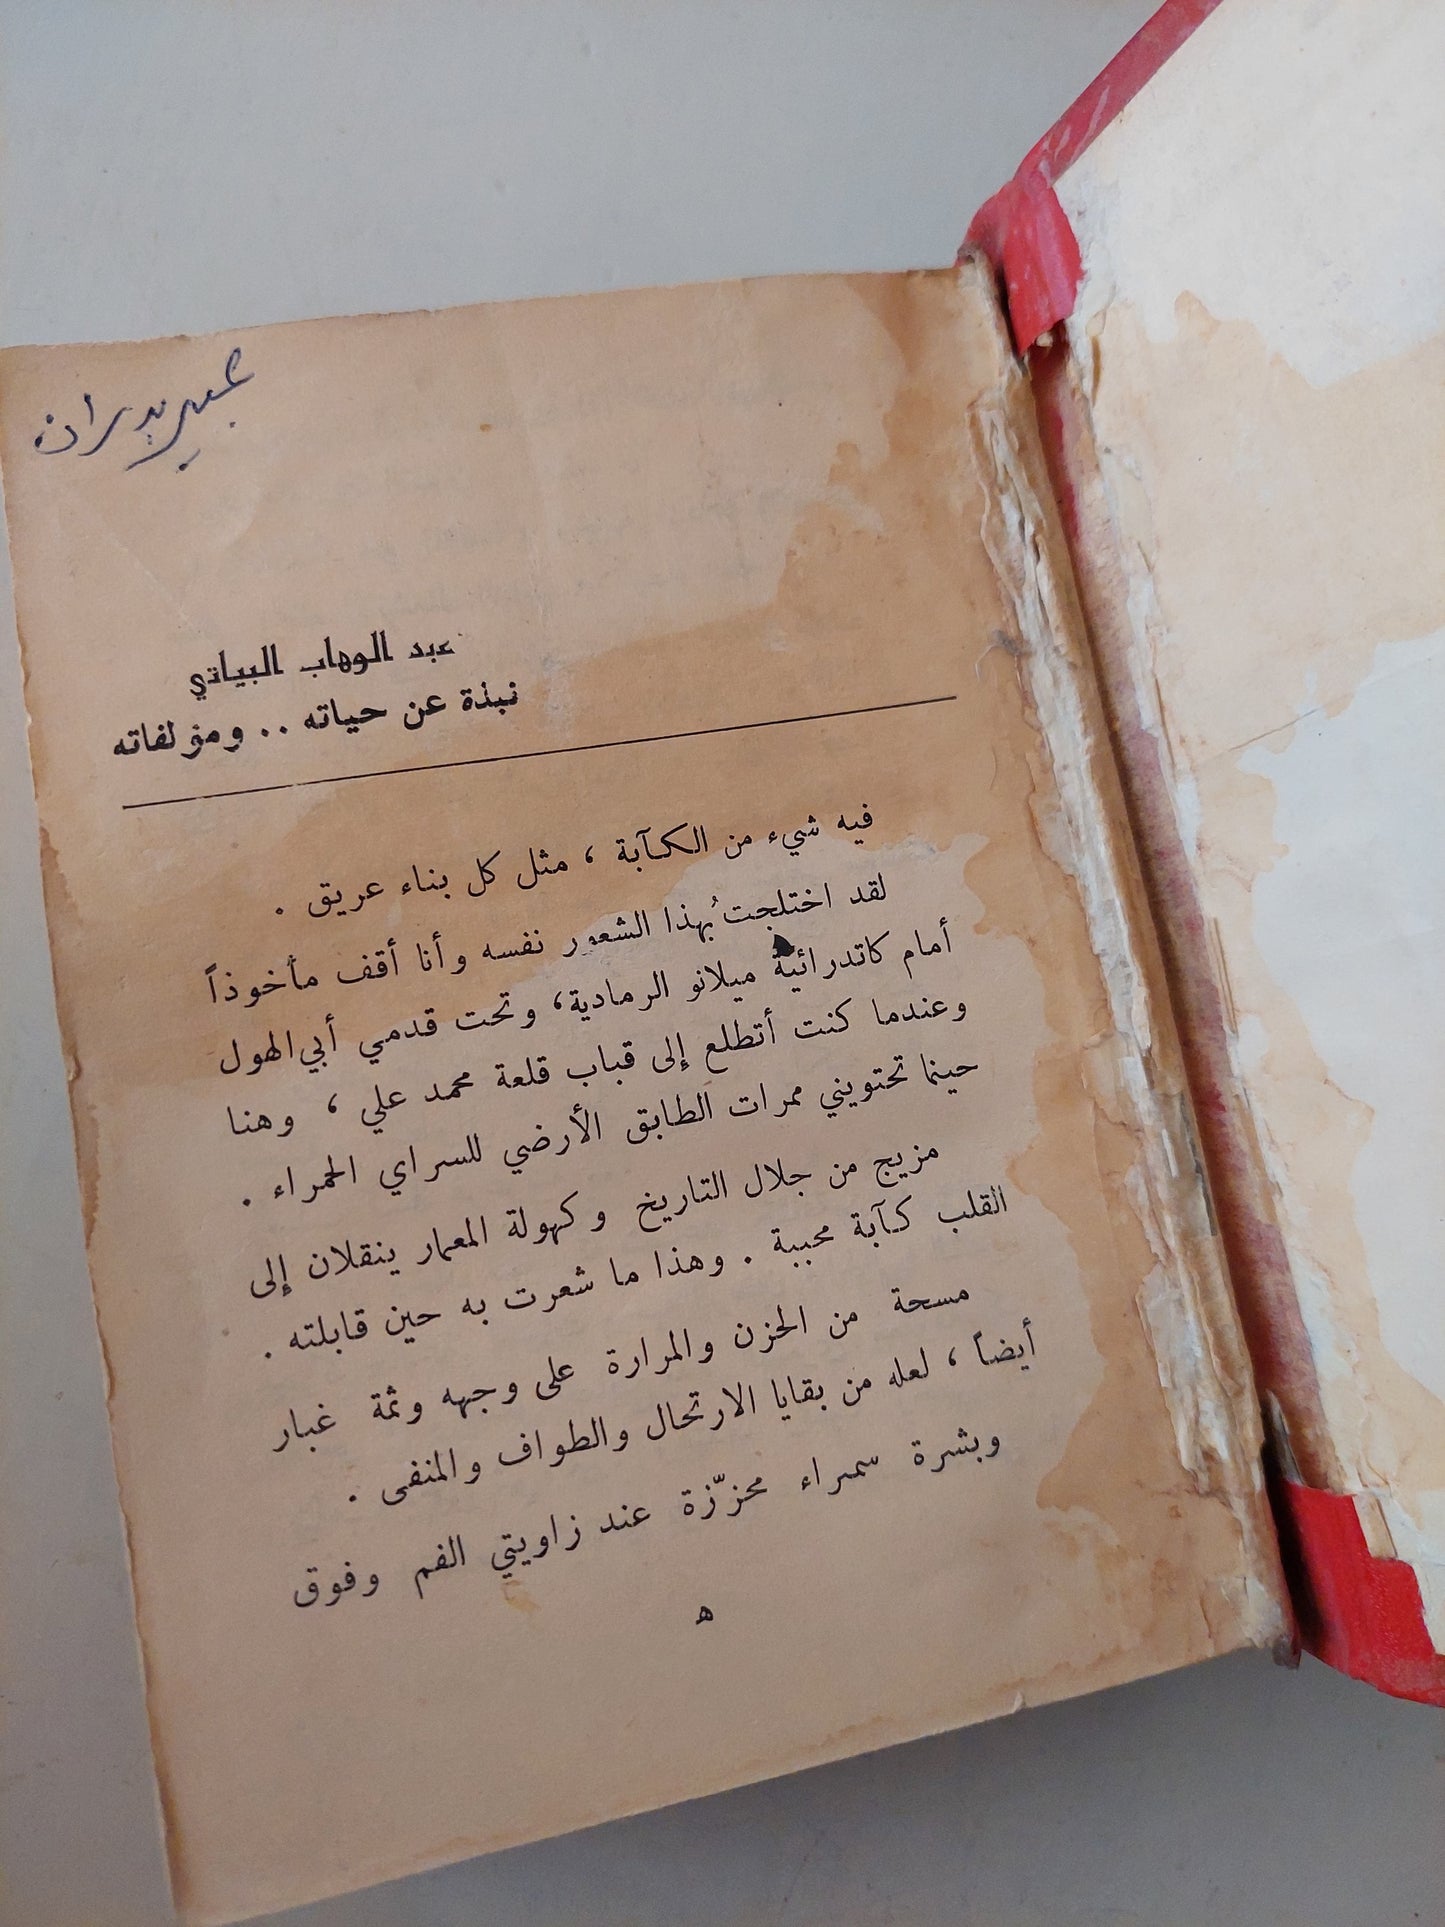 بدران
عبد الوهاب البياتي
نبذة عن حياته . . ومؤلفاته
فيه شيء من الكآبة ، مثل كل بناء عريق .
لقد اختلجتُ بهذا الشعور نفسه وأنا أقف مأخوذاً
أمام كاتدرائية ميلانو الرمادية، وتحت قدمي أبي الهول
وعندما كنت أتطلع إلى قباب قلعة محمد علي ، وهنا
حينما تحتويني ممرات الطابق الأرضي للسراي الحمراء .
مزيج من جلال التاريخ وكهولة المعمار ينقلان إلى
القلب كآبة محببة . وهذا ما شعرت به حين قابلته .
مسحة من الحزن والمرارة على وجهه وثمة غبار
أيضاً ، لعله من بقايا الارتحال والطواف والمنفى .
وبشرة سمراء محزّزة عند زاويتي الفم وفوق
ه